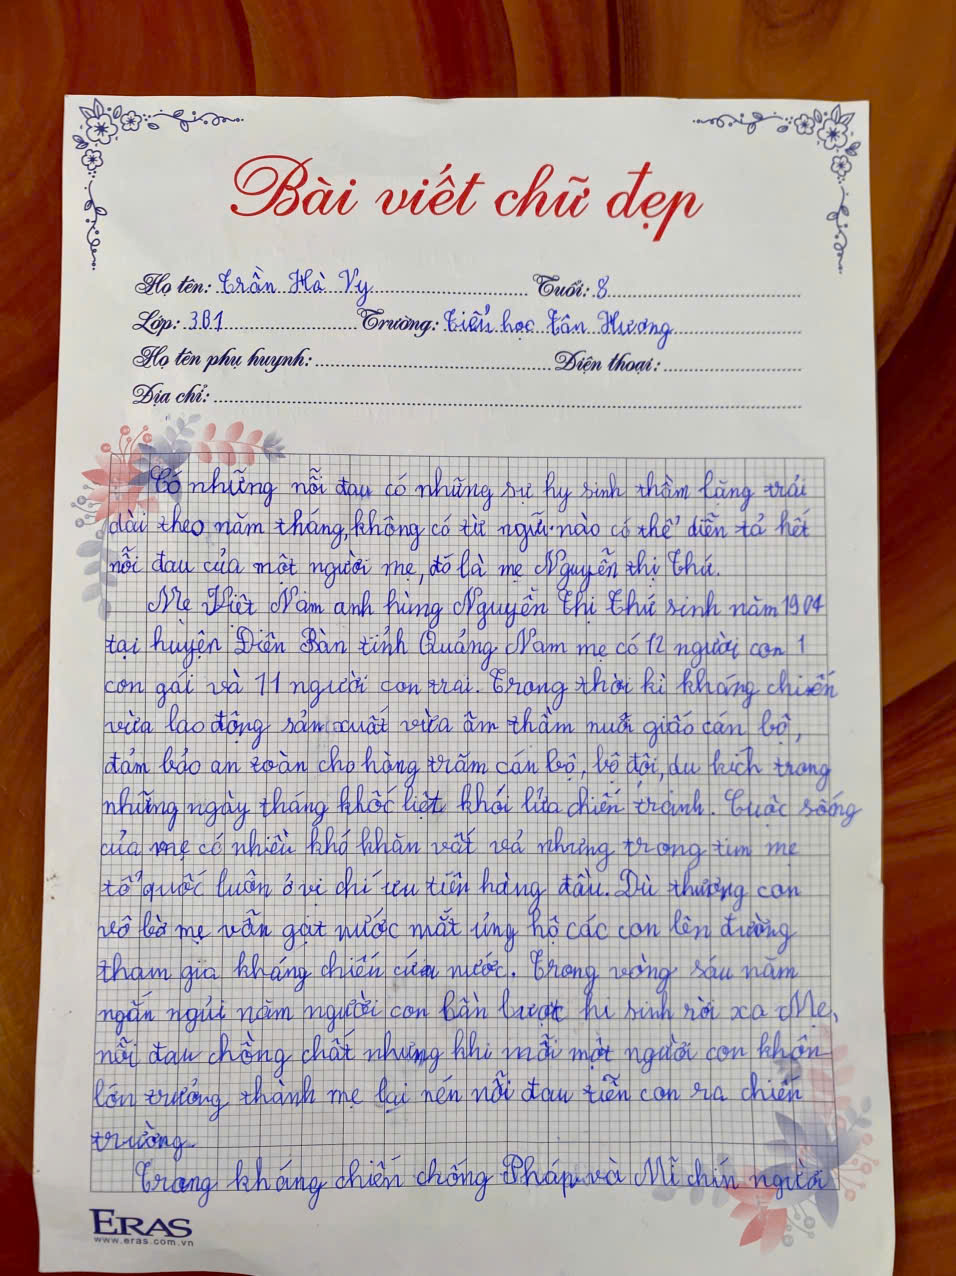 Bài viết chữ đẹp
Họ tên: Trần Hà Vy Tuổi: 8
Lớp: 3B1 Trường: Tiểu học Tân Hương
Họ tên phụ huynh: Điện thoại:
Địa chỉ:
Có những nỗi đau có những sự hy sinh thầm lặng trải
dài theo năm tháng, không có từ ngữ nào có thể diễn tả hết
nỗi đau của một người mẹ, đó là mẹ Nguyễn thị Thứ.
Mẹ Việt Nam anh hùng Nguyễn Thị Thứ sinh năm 1904
tại huyện Điện Bàn tỉnh Quảng Nam mẹ có 12 người con 1
con gái và 11 người con trai. Trong thời kì kháng chiến
vừa lao động sản xuất vừa âm thầm nuôi giấo cán bộ,
đảm bảo an toàn cho hàng trăm cán bộ, bộ đội, du kích trong
những ngày tháng khốc liệt khói lửa chiến tranh. Cuộc sống
của mẹ có nhiều khó khăn vất vả nhưng trong tim mẹ
tổ quốc luôn ở vị chí ưu tiên hàng đầu. Dù thương con
vô bờ mẹ vẫn gạt nước mắt ủng hộ các con lên đường
tham gia kháng chiến cứu nước. Trong vòng sáu năm
ngắn ngủi năm người con lần lượt hi sinh rời xa Mẹ,
nỗi đau chồng chất nhưng khi mỗi một người con khôn
lớn trưởng thành mẹ lại nén nỗi đau tiễn con ra chiến
trường.
Trong kháng chiến chống Pháp và Mĩ chín người
ERAS
www.eras.com.vn